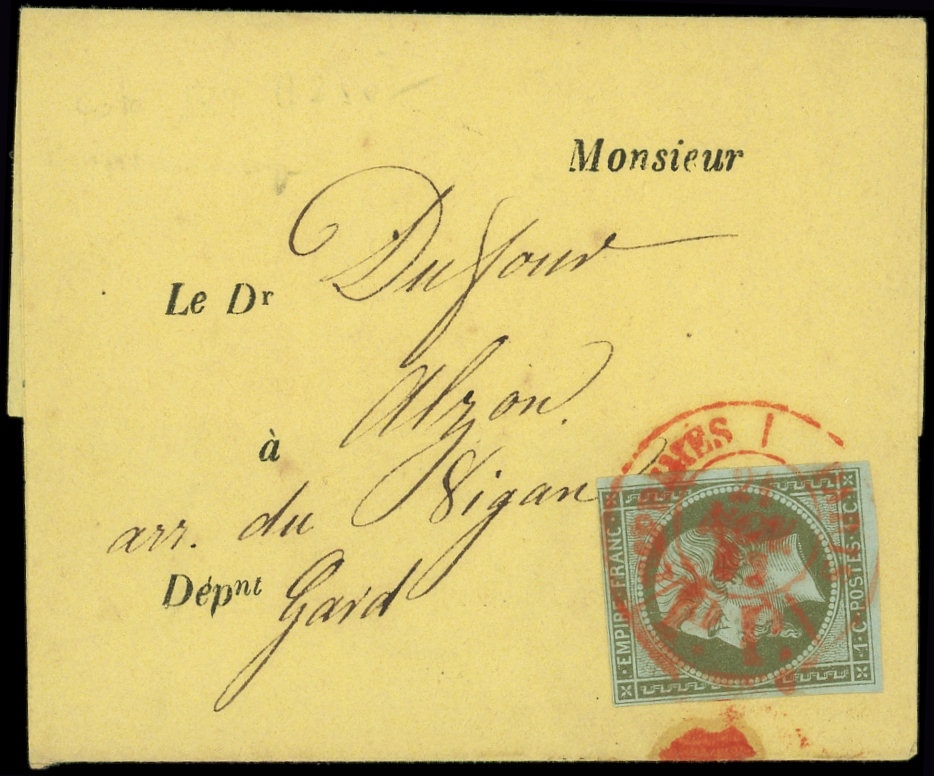 Monsieur
Le Dr Dufour
à Alzon.
arr. du Vigan
Dépnt Gard
EMPIRE·FRANC·
1·C·POSTES·1·C·